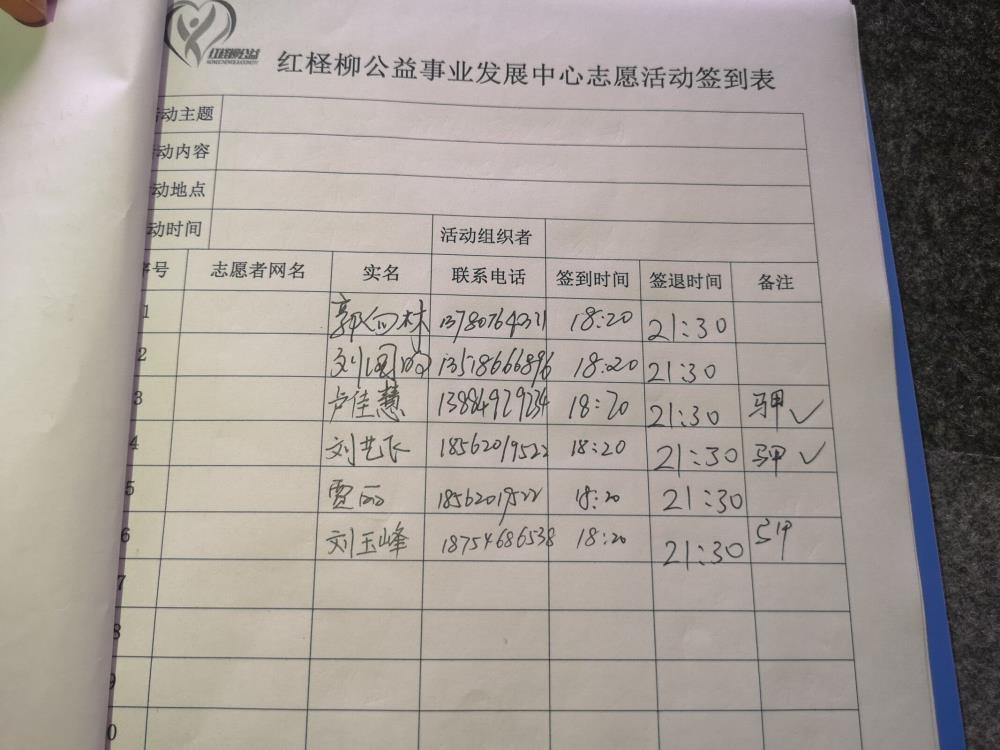 红柽柳公益
红柽柳公益事业发展中心志愿活动签到表
活动主题
动内容
动地点
动时间 活动组织者
序号 志愿者网名 实名 联系电话 签到时间 签退时间 备注
1 郭向林 18:20 21:30
2 13518666896 18:20 21:30
3 卢佳慧 13884929234 18:20 21:30 马甲✓
4 刘艺飞 18562019522 18:20 21:30 马甲✓
5 贾丽 18562019522 18:20 21:30
6 刘玉峰 18754686538 18:20 21:30
7
8
9
0